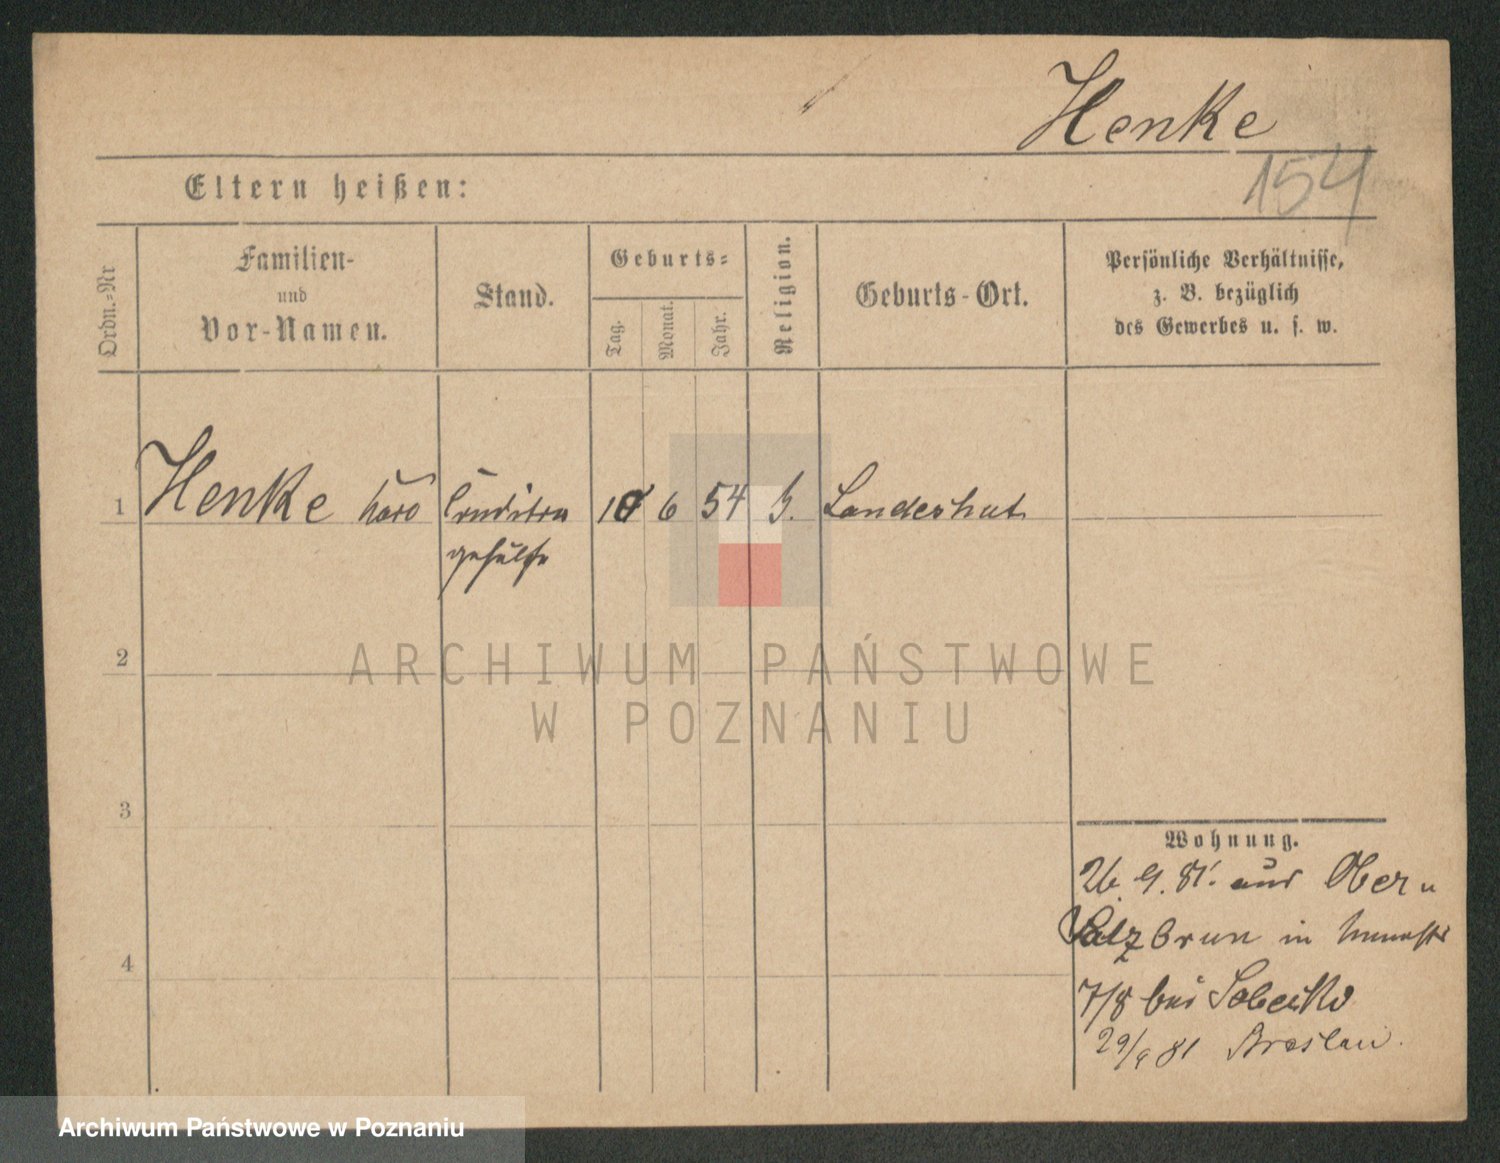 Henke
154
Eltern heißen:
Ordn.-Nr
Familien-
und
Vor-Namen.
Stand.
Geburts-
Tag.
Monat.
Jahr.
Religion.
Geburts-Ort.
Persönliche Verhältnisse,
z. B. bezüglich
des Gewerbes u. s. w.
1 Henke 6 54 Landeshut
gehülfe
2
3
4
ARCHIWUM PAŃSTWOWE
W POZNANIU
Wohnung.
26. 9. 81. aus Ober
Salzbrun in
7/8 bei
29/9 81 Breslau.
Archiwum Państwowe w Poznaniu